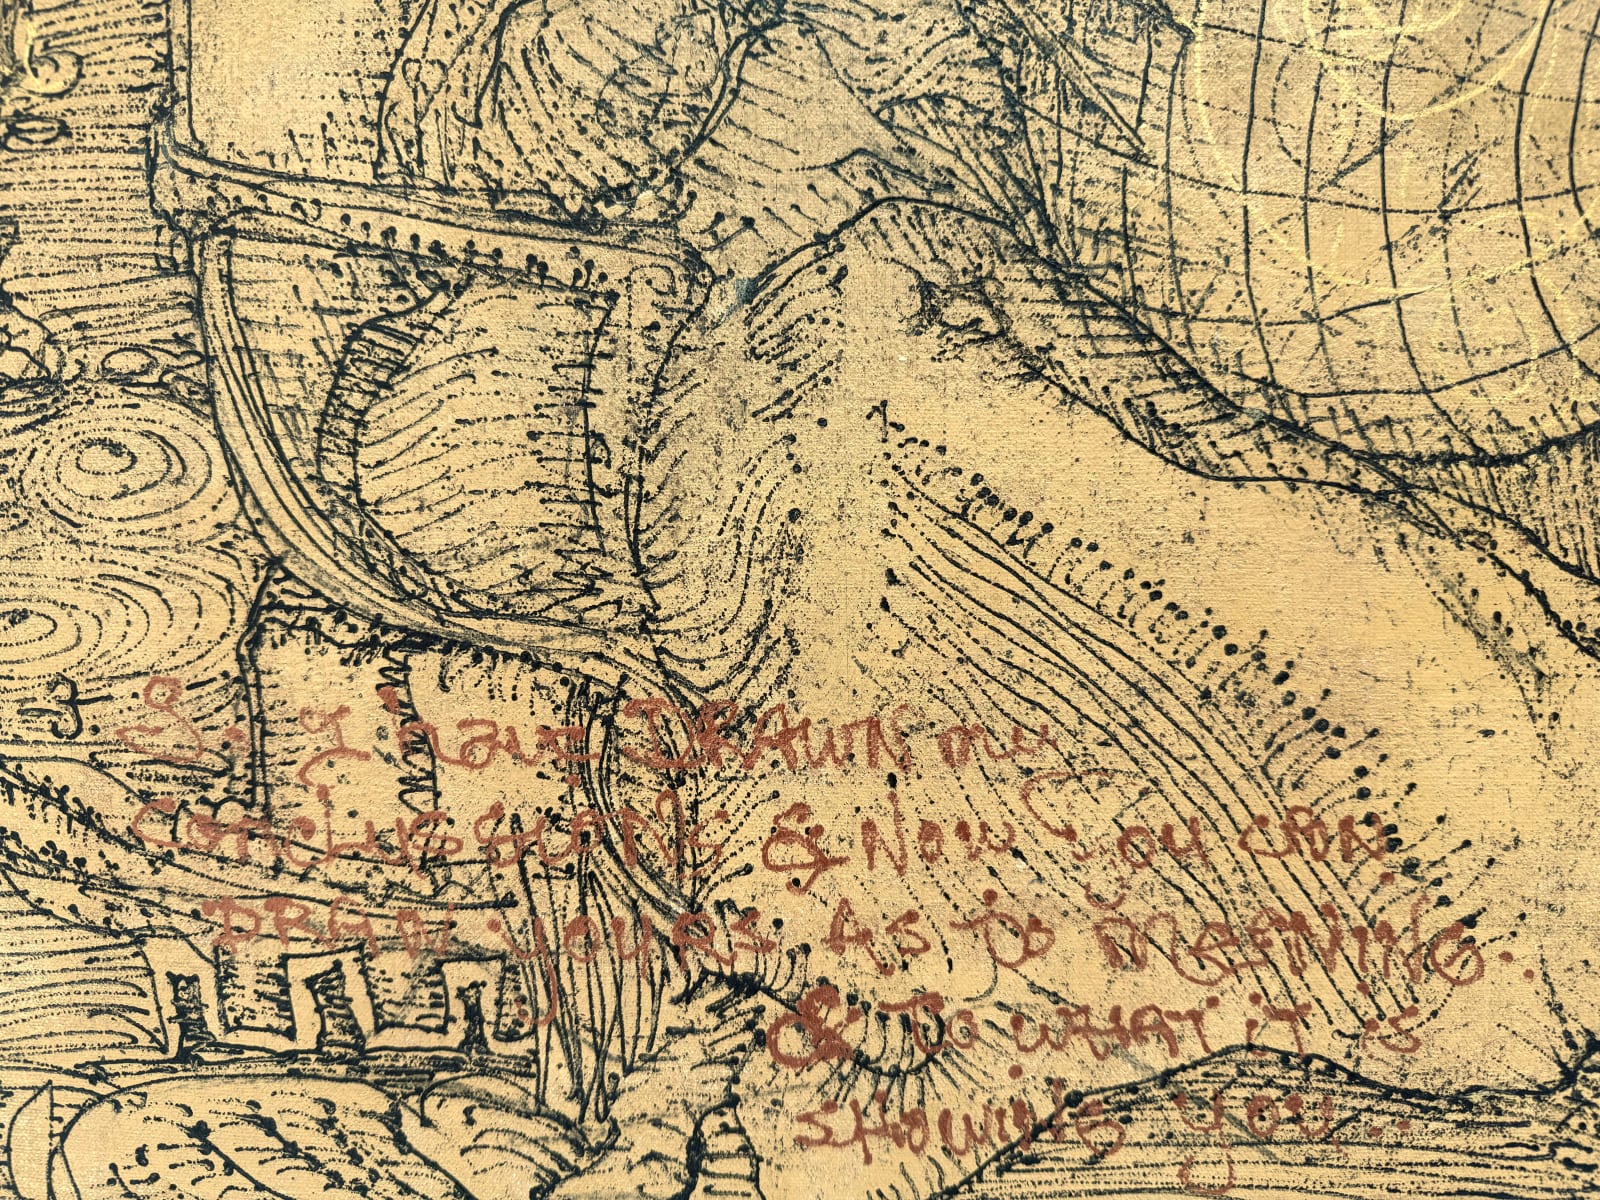 So I have DRAWN my
conclussions & NOW You CAN
DRAW yours As to MeANiNG..
& To wHAT iT is
SHOWiNG you...